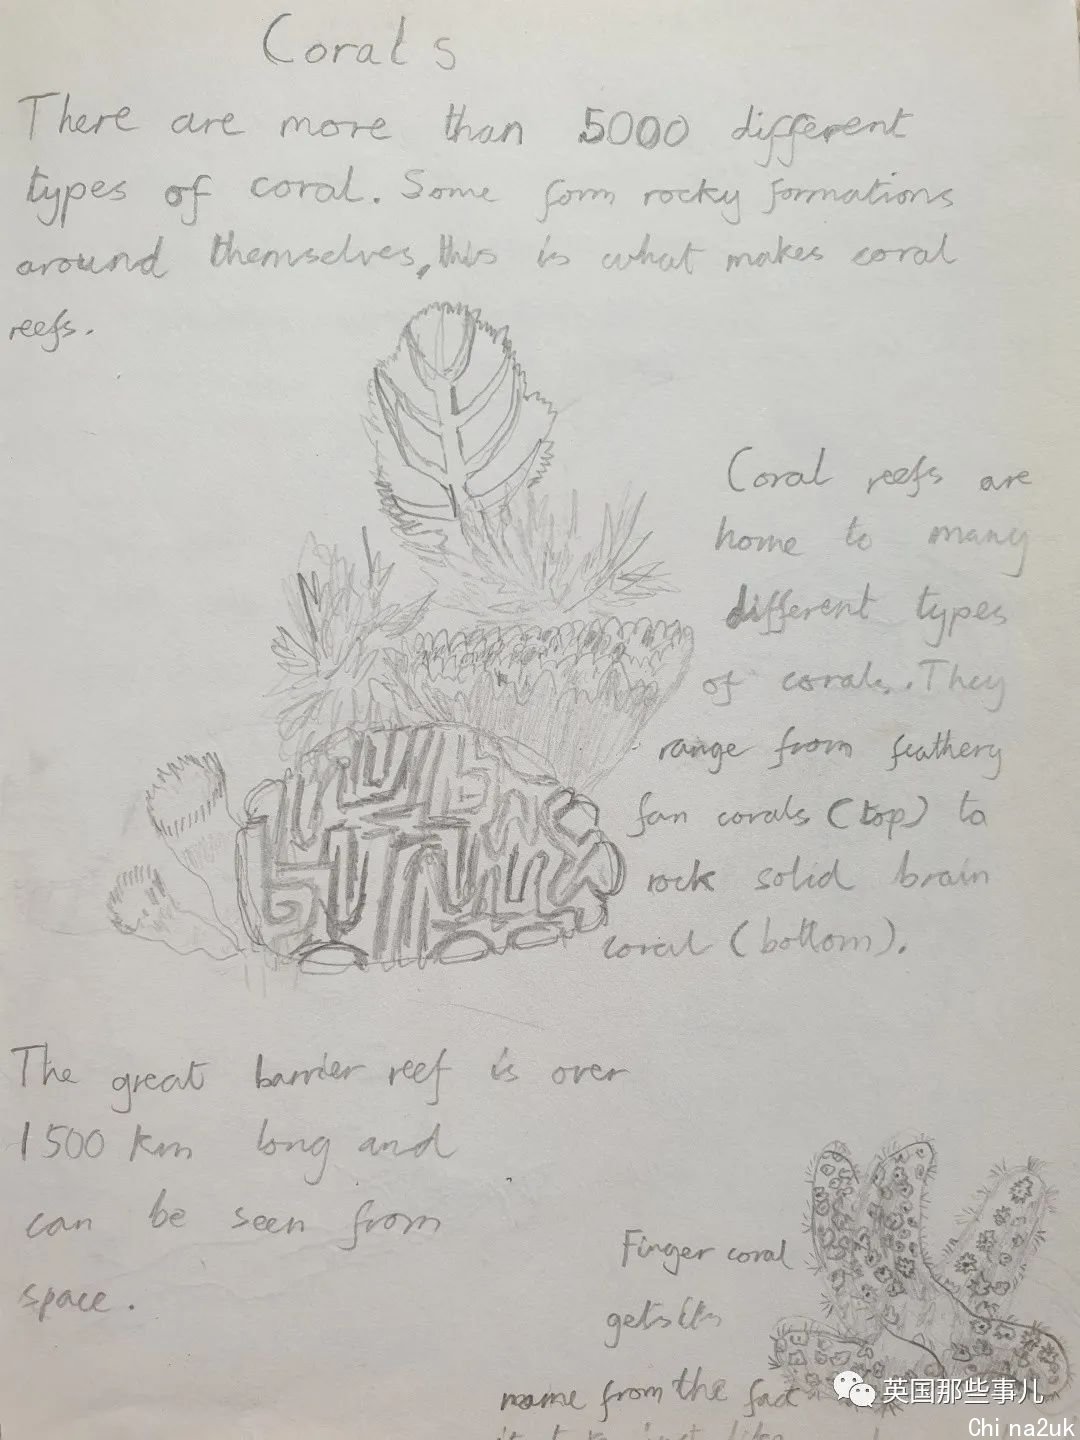 Corals
There are more than 5000 different
types of coral. Some form rocky formations
around themselves, this is what makes coral
reefs.
Coral reefs are
home to many
different types
of corals. They
range from feathery
fan corals (top) to
rock solid brain
coral (bottom).
The great barrier reef is over
1500 km long and
can be seen from
space.
Finger coral
gets its
name from the fact
it just like
英国那些事儿
China2uk